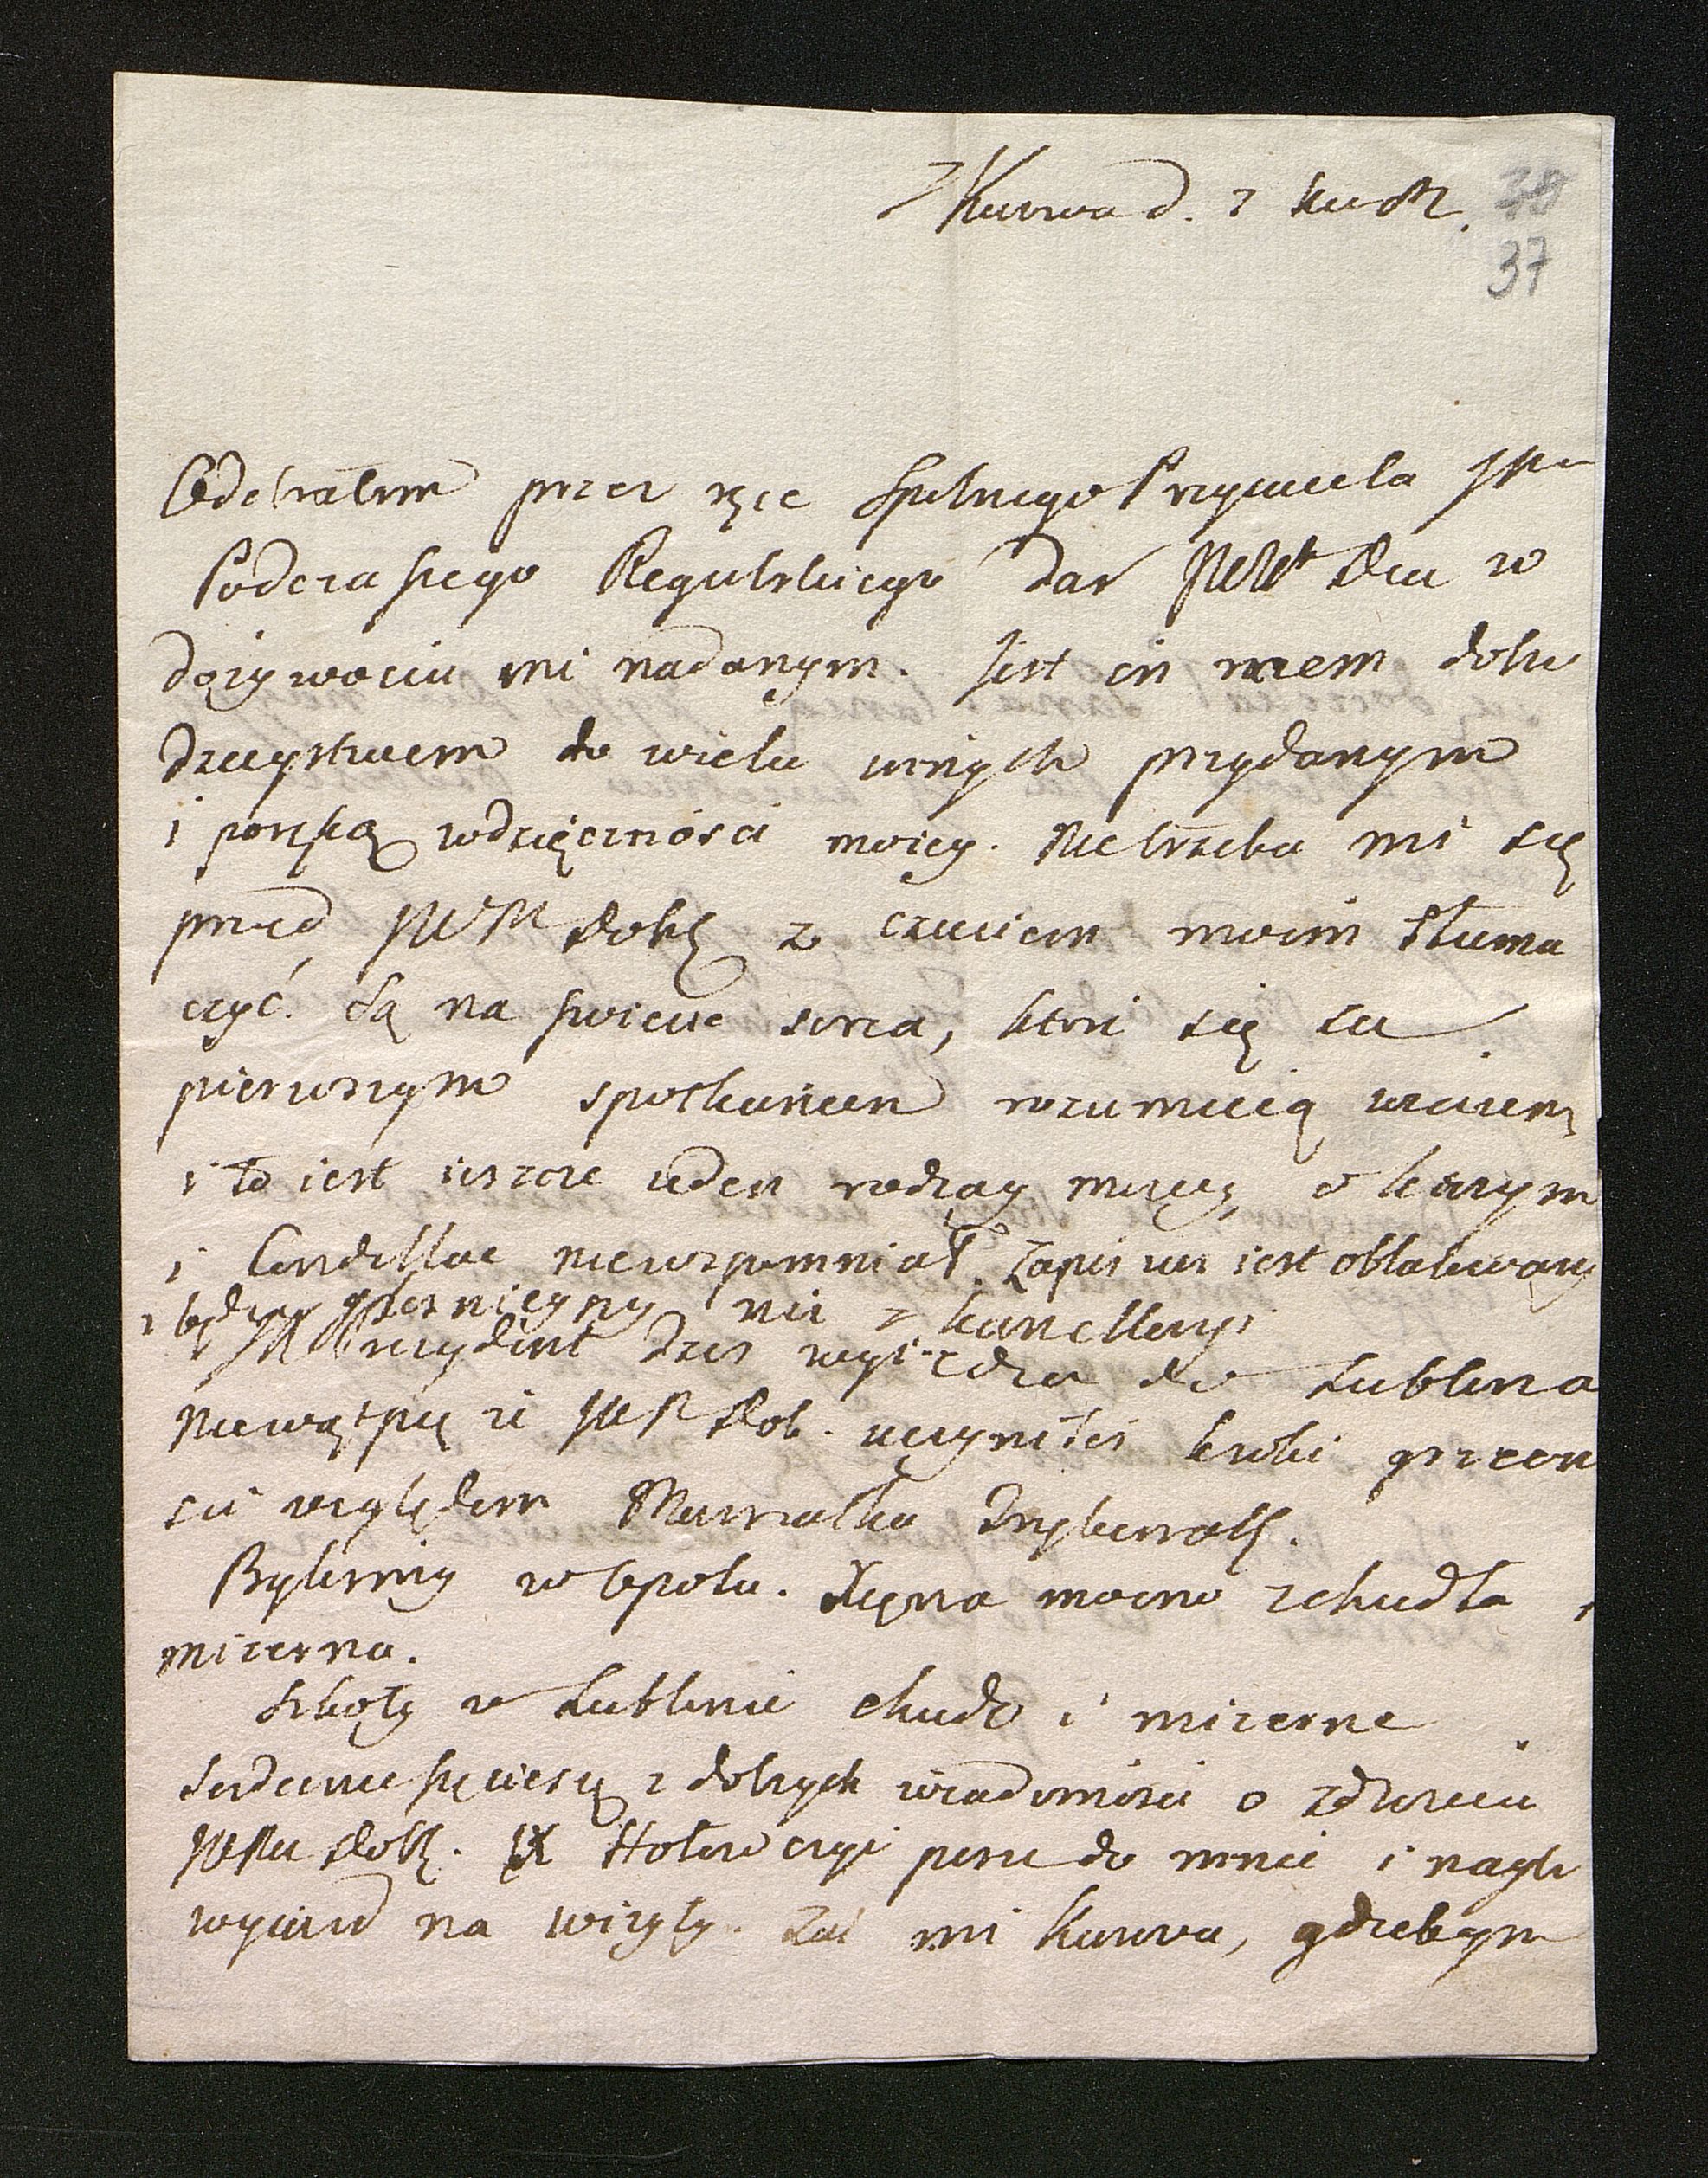 z Kurowa d. 7
38
37
Odebrałem przez ręce spolnego Przyiaciela JP
Podczaszego Regulskiego dar JWW Dui w
dożywociu mi nadanym. Jest on razem dobro
dzieystwem do wielu innych przydanym
i poręką wdzięczności moiey. Nie trzeba mi się
przed JWP Dobr z czuciem moim tłuma
czyć. Są na swiecie serca, ktore się za
pierwszym spotkaniem rozumieią wzaiem,
i to iest ieszcze ieden rodzay mowy, o ktorym
i Condillac nie wspomniał. Zapis ten iest oblatowany
i będzie nie z kancellaryi
JX Prezydent dzis wyieżdza do Lublina
Nie wątpię że JWP Dob. uczyniłes kroki
względem Marszałka Trybunalsk.
Bylismy w Opolu. Xiężna mocno schudła i
mizerna.
Szkoły w Lublinie chudo i mizerne
Serdecznie się cieszę z dobrych wiadomości o zdrowiu
JWPu Dobr. JX Hołowczyc pisze do mnie i nagli
wyiazd na wizytę. Żal mi Kurowa, gdziebym